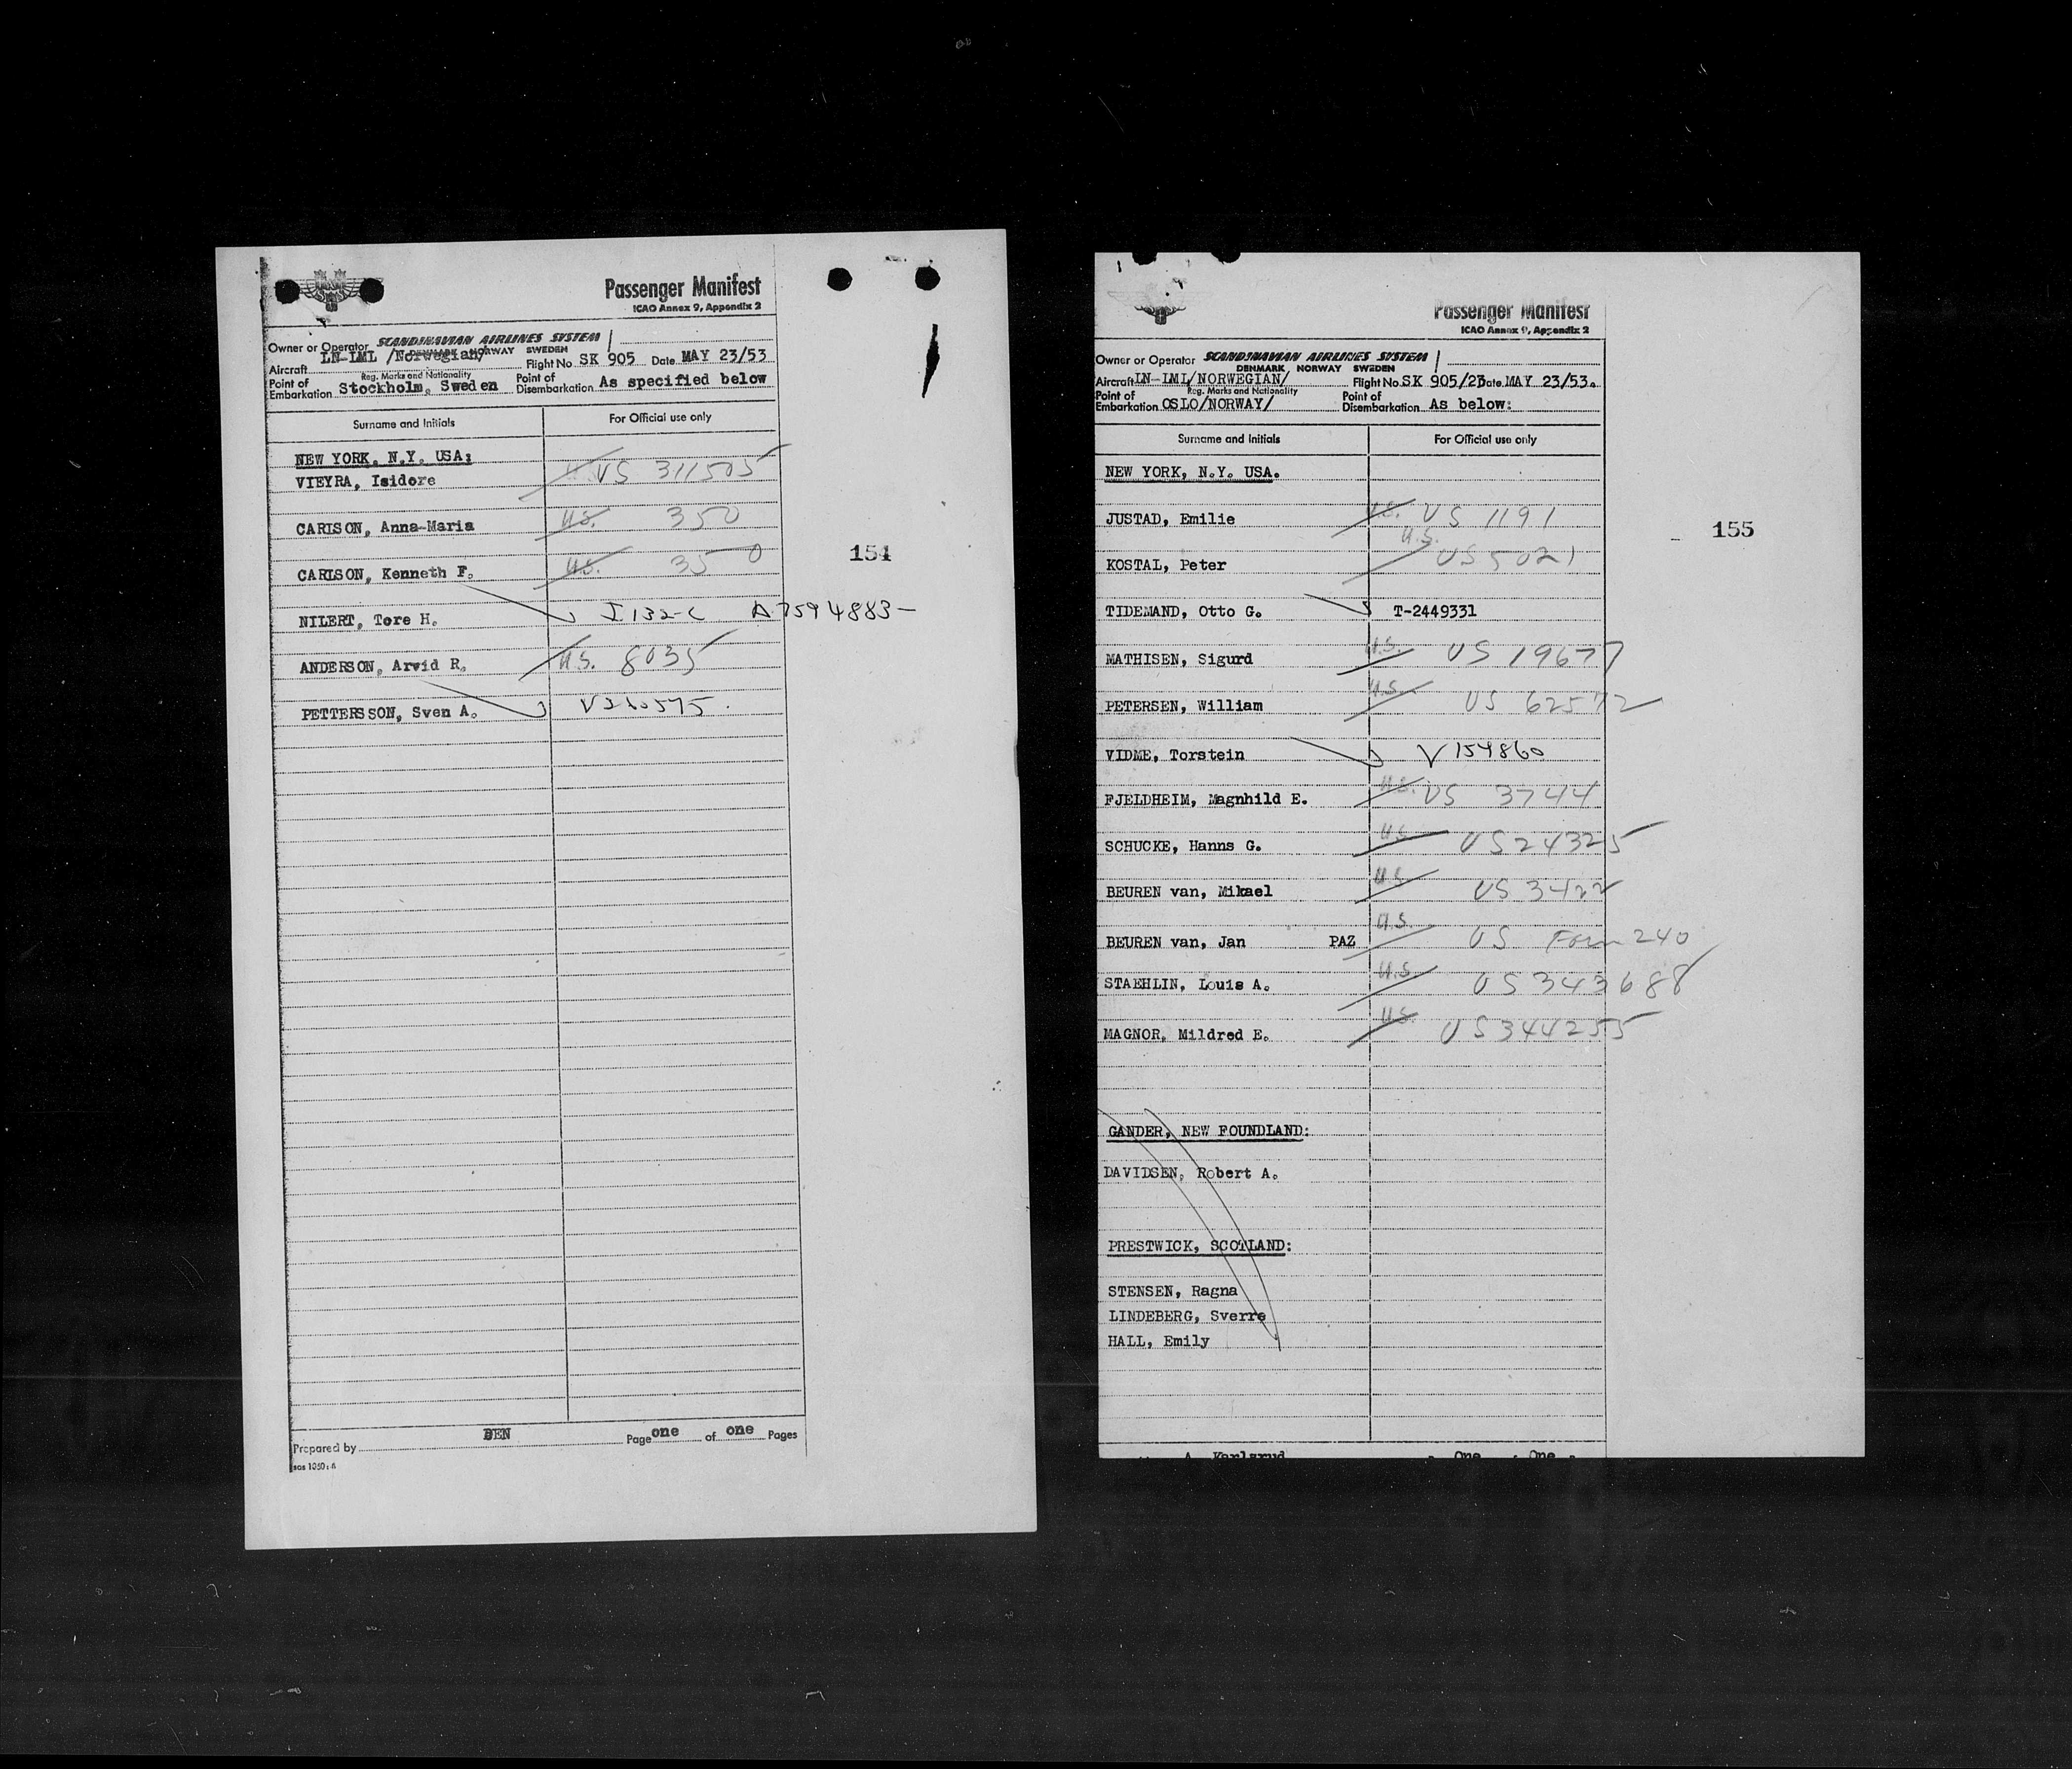 Passenger Manifest
ICAO Annex 9, Appendix 2
Owner or Operator SCANDINAVIAN AIRLINES SYSTEM
NORWAY SWEDEN
Aircraft LN-LML /Norwegian/ Flight No SK 905 Date MAY 23/53
Reg. Marks and Nationality
Point of Embarkation Stockholm, Sweden Point of Disembarkation As specified below
Surname and Initials For Official use only
NEW YORK, N.Y. USA:
VIEYRA, Isidore US 311505
CARLSON, Anna-Maria U.S. 350
CARLSON, Kenneth F. U.S. 350
151
NILERT, Tore H. I 132-C A7594883-
ANDERSON, Arvid R. U.S. 8035
PETTERSSON, Sven A.
Prepared by BEN Page one of one Pages
sas 1050:6
Passenger Manifest
ICAO Annex 9, Appendix 2
Owner or Operator SCANDINAVIAN AIRLINES SYSTEM
DENMARK NORWAY SWEDEN
Aircraft LN-LML/NORWEGIAN/ Flight No SK 905/23 Date MAY 23/53.
Reg. Marks and Nationality
Point of Embarkation OSLO/NORWAY/ Point of Disembarkation As below:
Surname and Initials For Official use only
NEW YORK, N.Y. USA.
JUSTAD, Emilie U.S. US 1191
155
KOSTAL, Peter U.S. US 5021
TIDEMAND, Otto G. T-2449331
MATHISEN, Sigurd U.S. US 19677
PETERSEN, William U.S. US 62572
VIDME, Torstein V 154860
FJELDHEIM, Magnhild E. U.S. US 3744
SCHUCKE, Hanns G. U.S. US 24325
BEUREN van, Mikael U.S. US 3422
BEUREN van, Jan PAZ U.S. US Form 240
STAEHLIN, Louis A. U.S. US 343688
MAGNOR, Mildred E. U.S. US 344255
GANDER, NEW FOUNDLAND:
DAVIDSEN, Robert A.
PRESTWICK, SCOTLAND:
STENSEN, Ragna
LINDEBERG, Sverre
HALL, Emily
A. Karlsrud One One